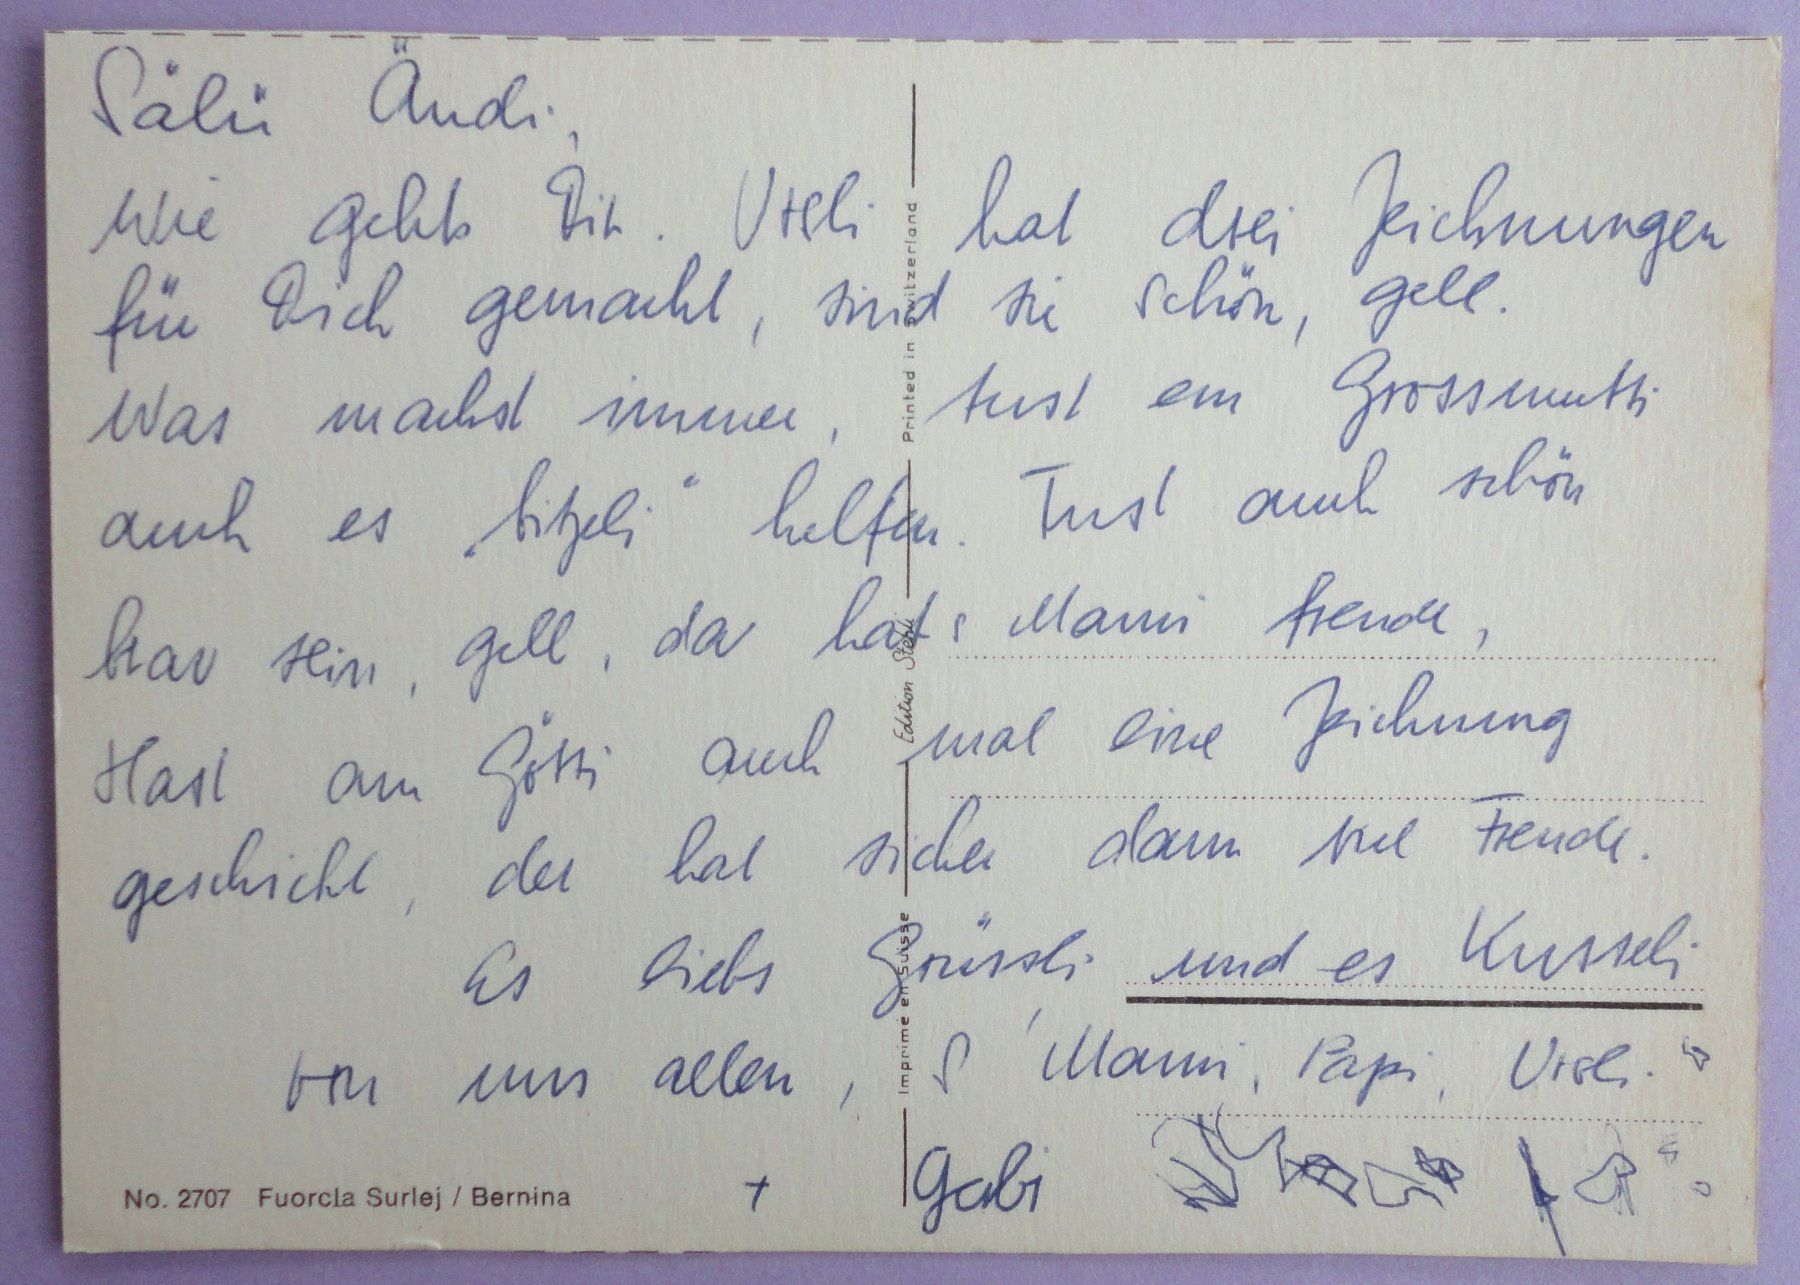 Sälü Ändi,
Wie gehts Dir. Ursli hat drei Zeichnungen
für Dich gemacht, sind sie schön, gell.
Was machst immer, tust em Grossmutti
auch es „bitzeli" helfen. Tust auch schön
brav sein, gell, da hat s Mami freude,
Hast am Götti auch mal eine Zeichnung
geschickt, der hat sicher dann viel Freude.
Es liebs Grüssli und es Kusseli
von uns allen, S Mami, Papi, Ursli.
+ Gabi
No. 2707 Fuorcla Surlej / Bernina
Imprimé en Suisse Edition Stehli Printed in Switzerland